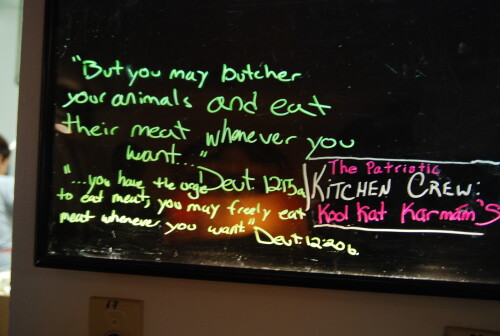 "But you may butcher
your animals and eat
their meat whenever you
want..."
Deut 12:15a
"...you have the urge
to eat meat, you may freely eat
meat whenever you want."
Deut. 12:20b.
The Patriotic
KITCHEN CREW:
Kool Kat Karmam's